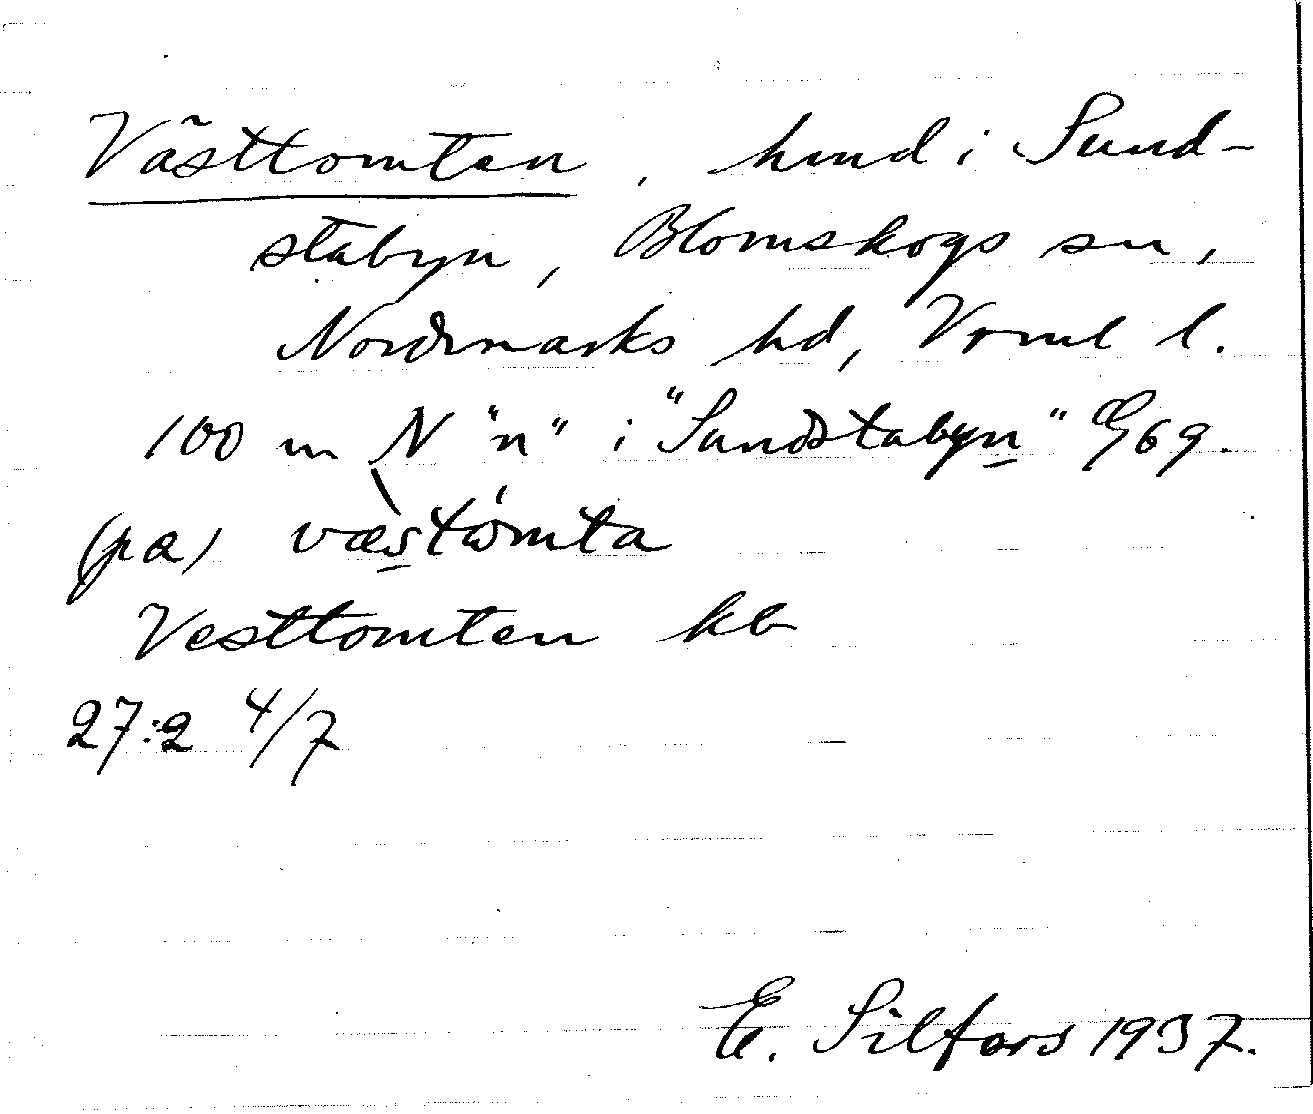 Västtomten, hmd i Sund-
stabyn, Blomskogs sn,
Nordmarks hd, Vrml l.
100 m N "n" i "Sundstabyn" Eg 69.
(pa) væstòmta
Vesttomten kb
27:2 4/7
E. Silfors 1937.